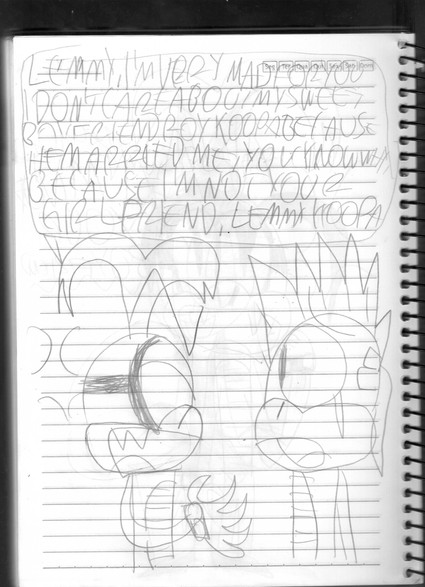 LEMMY, I'M VERY MAD FOR YOU
I DON'T CARE ABOUT MY SWEET
BOYFRIEND ROY KOOPA BECAUSE
HE MARRIED ME, YOU KNOW WHY
BECAUSE I'M NOT YOUR
GIRLFRIEND, LEMMY KOOPA